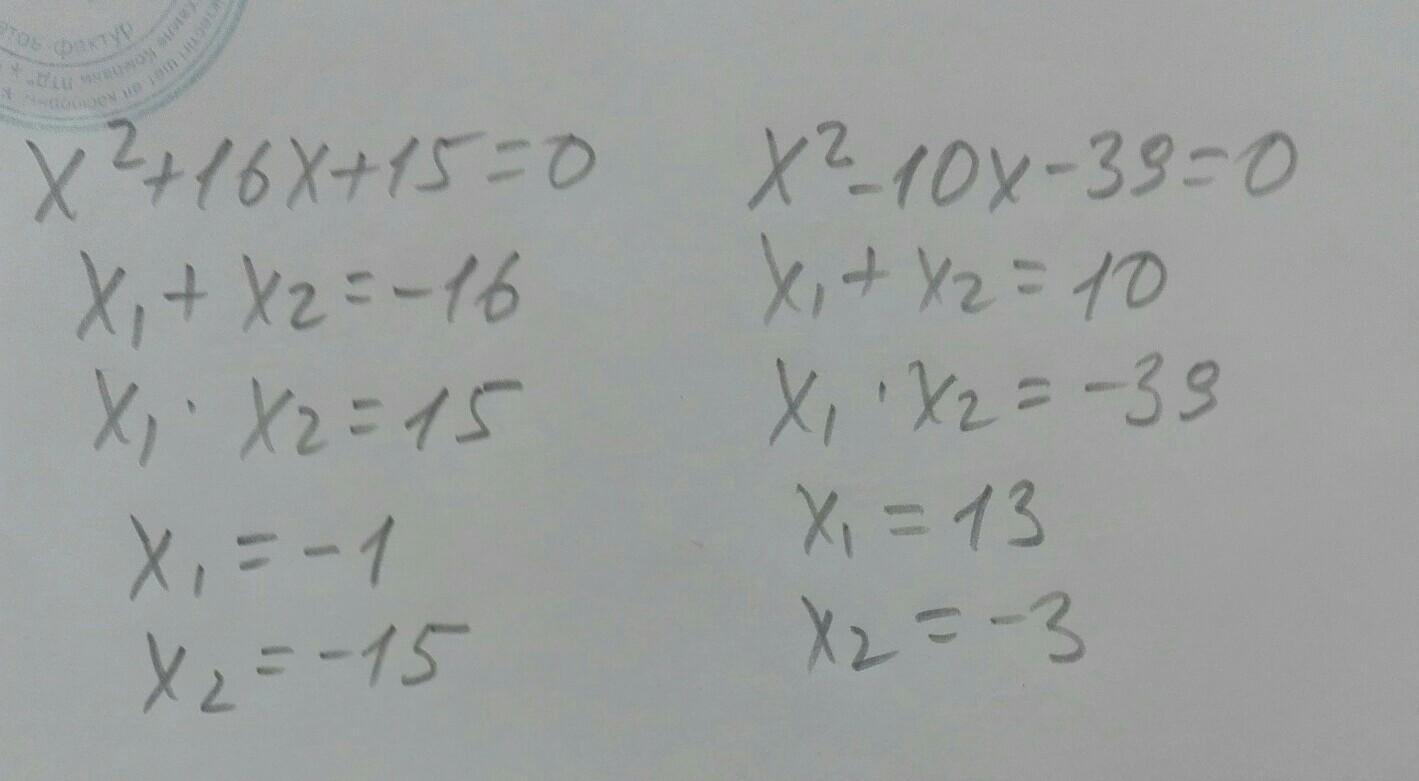 фактур
x²+16x+15=0
x₁+x₂=-16
x₁·x₂=15
x₁=-1
x₂=-15
x²-10x-39=0
x₁+x₂=10
x₁·x₂=-39
x₁=13
x₂=-3